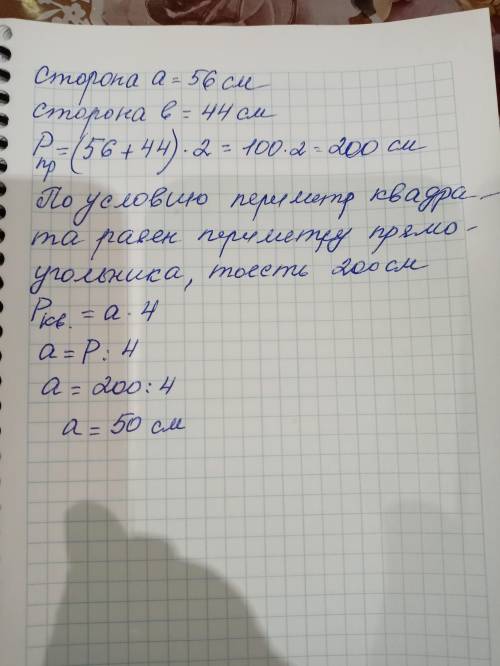 Сторона a = 56 см
Сторона в = 44 см
Pпр = (56 + 44) · 2 = 100 · 2 = 200 см
По условию периметр квадра-
та равен периметру прямо-
угольника, тоесть 200 см
Pкв. = a · 4
a = P : 4
a = 200 : 4
a = 50 см